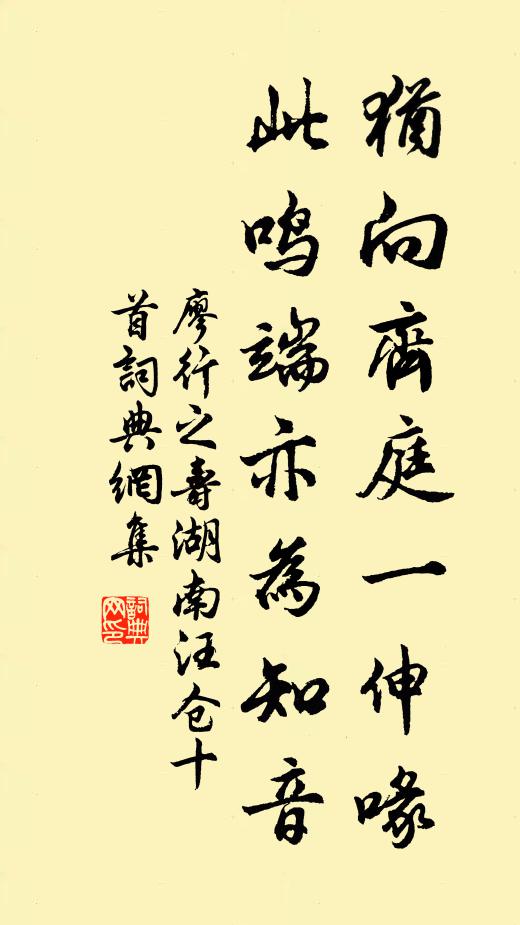 猶向齊庭一伸喙
此鸣端亦為知音
廖行之壽湖南汪仓十
首詞典網集
詞典
网印